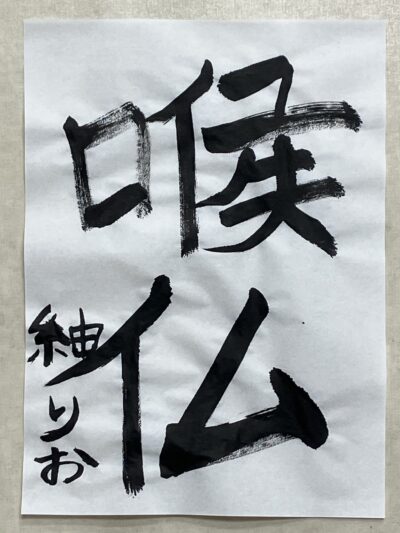 喉
仏
紬りお